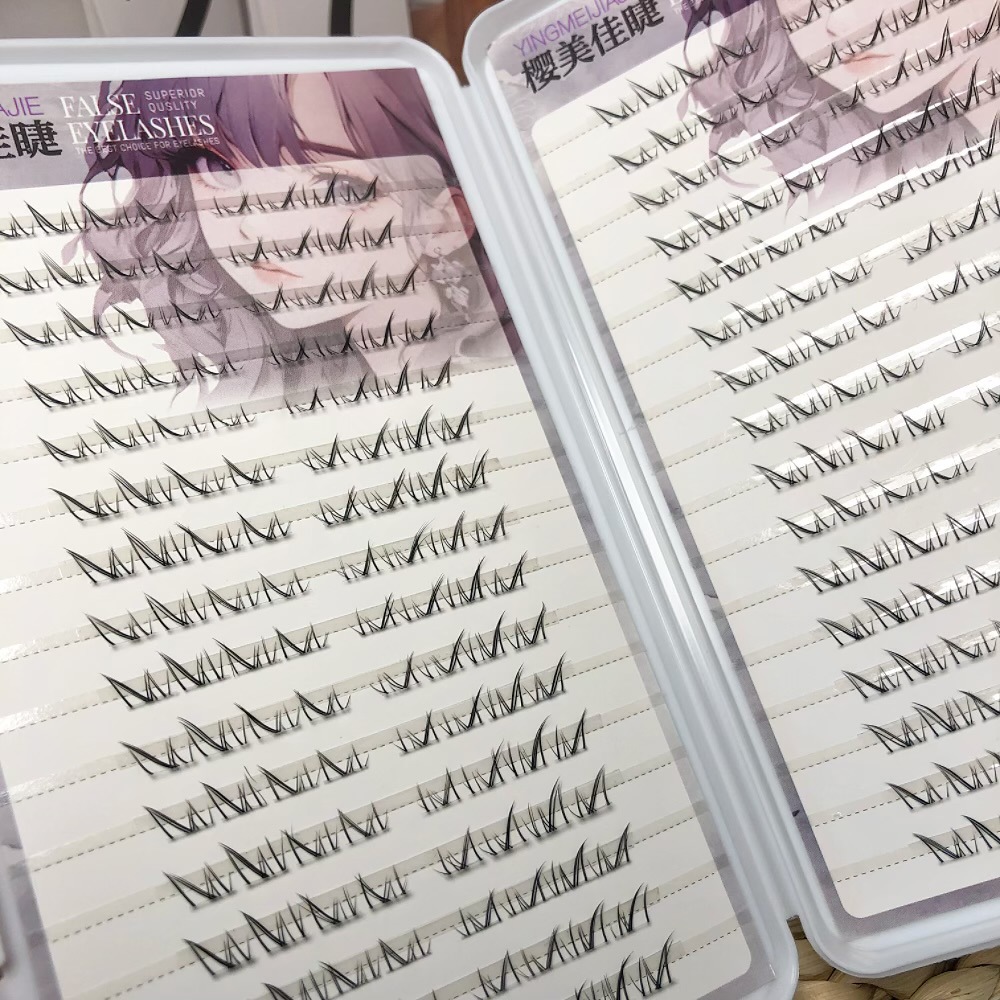 AJIE
佳睫
FALSE
EYELASHES
SUPERIOR
QUSLITY
THE BECT CHOICE FOR EYELASHES
YINGMEIJIA
樱美佳睫